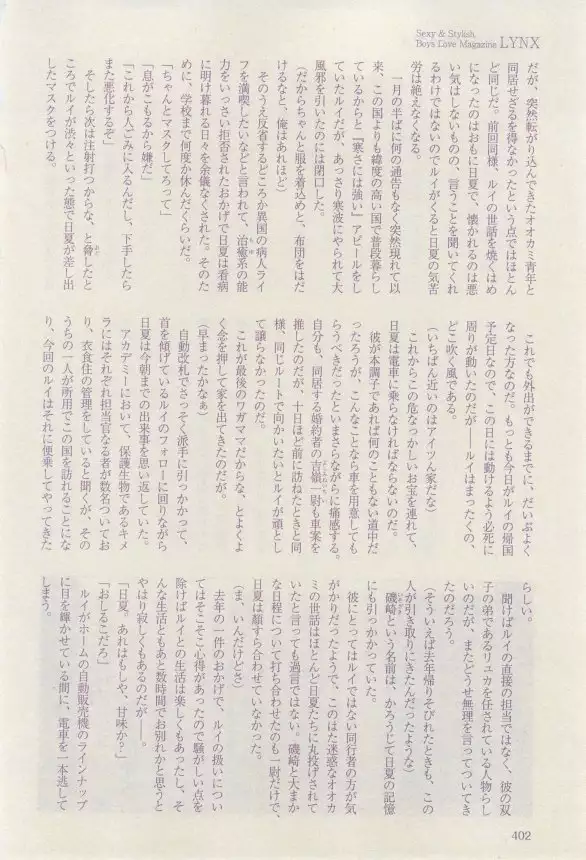 Sexy & Stylish
Boys Love Magazine LYNX
だが、突然転がり込んできたオオカミ青年と
同居せざるを得なかったという点ではほとん
ど同じだ。前回同様、ルイの世話を焼くはめ
になったのはおもに日夏で、懐かれるのは悪
い気はしないものの、言うことを聞いてくれ
るわけではないのでルイがくると日夏の気苦
労は絶えなくなる。
一月の半ばに何の通告もなく突然現れて以
来、この国よりも緯度の高い国で普段暮らし
ているからと「寒さには強い」アピールをし
ていたルイだが、あっさり寒波にやられて大
風邪を引いたのには閉口した。
（だからちゃんと服を着込めと、布団をはだ
けるなと、俺はあれほど）
そのうえ反省するどころか異国の病人ライ
フを満喫したいなどと言われて、治癒系の能
力をいっさい拒否されたおかげで日夏は看病
に明け暮れる日々を余儀なくされた。そのた
めに、学校まで何度か休んだくらいだ。
「ちゃんとマスクしてろって」
「息がこもるから嫌だ」
「これから人ごみに入るんだし、下手したら
また悪化するぞ」
そしたら次は注射打つからな、と脅したと
ころでルイが渋々といった態で日夏が差し出
したマスクをつける。
これでも外出ができるまでに、だいぶよく
なった方なのだ。もっとも今日がルイの帰国
予定日なので、この日には動けるよう必死に
周りが動いたのだが――ルイはまったくの、
どこ吹く風である。
（いちばん近いのはアイツん家だな）
これからこの危なっかしいお宝を連れて、
日夏は電車に乗らなければならないのだ。
彼が本調子であれば何のこともない道中だ
ったろうが、こんなことなら車を用意しても
らうべきだったといまさらながらに痛感する。
自分も、同居する婚約者の吉嶺一尉も車案を
推したのだが、十日ほど前に訪ねたときと同
様、同じルートで向かいたいとルイが頑とし
て譲らなかったのだ。
これが最後のワガママだからな、とよくよ
く念を押して家を出てきたのだが。
（早まったかなぁ）
自動改札でさっそく派手に引っかかって、
首を傾げているルイのフォローに回りながら
日夏は今朝までの出来事を思い返していた。
アカデミーにおいて、保護生物であるキメ
ラにはそれぞれ担当官なる者が数名ついてお
り、衣食住の管理をしていると聞くが、その
うちの一人が所用でこの国を訪れることにな
り、今回のルイはそれに便乗してやってきた
らしい。
聞けばルイの直接の担当ではなく、彼の双
子の弟であるリュカを任されている人物らし
いのだが、またどうせ無理を言ってついてき
たのだろう。
（そういえば去年帰りそびれたときも、この
人が引き取りにきたんだったような）
磯崎という名前は、かろうじて日夏の記憶
にも引っかかっていた。
彼にとってはルイではない同行者の方が気
がかりだったようで、このはた迷惑なオオカ
ミの世話はほとんど日夏たちに丸投げされて
いたと言っても過言ではない。磯崎と大まか
な日程について打ち合わせたのも一尉だけで、
日夏は顔すら合わせていなかった。
（ま、いんだけどさ）
去年の一件のおかげで、ルイの扱いについ
てはそこそこ心得があったので騒がしい点を
除けばルイとの生活は楽しくもあったし、そ
んな生活ともあと数時間でお別れかと思うと
やはり寂しくもあるのだが――。
「日夏。あれはもしや、甘味か？」
「おしるこだろ」
ルイがホームの自動販売機のラインナップ
に目を輝かせている間に、電車を一本逃して
しまう。
402